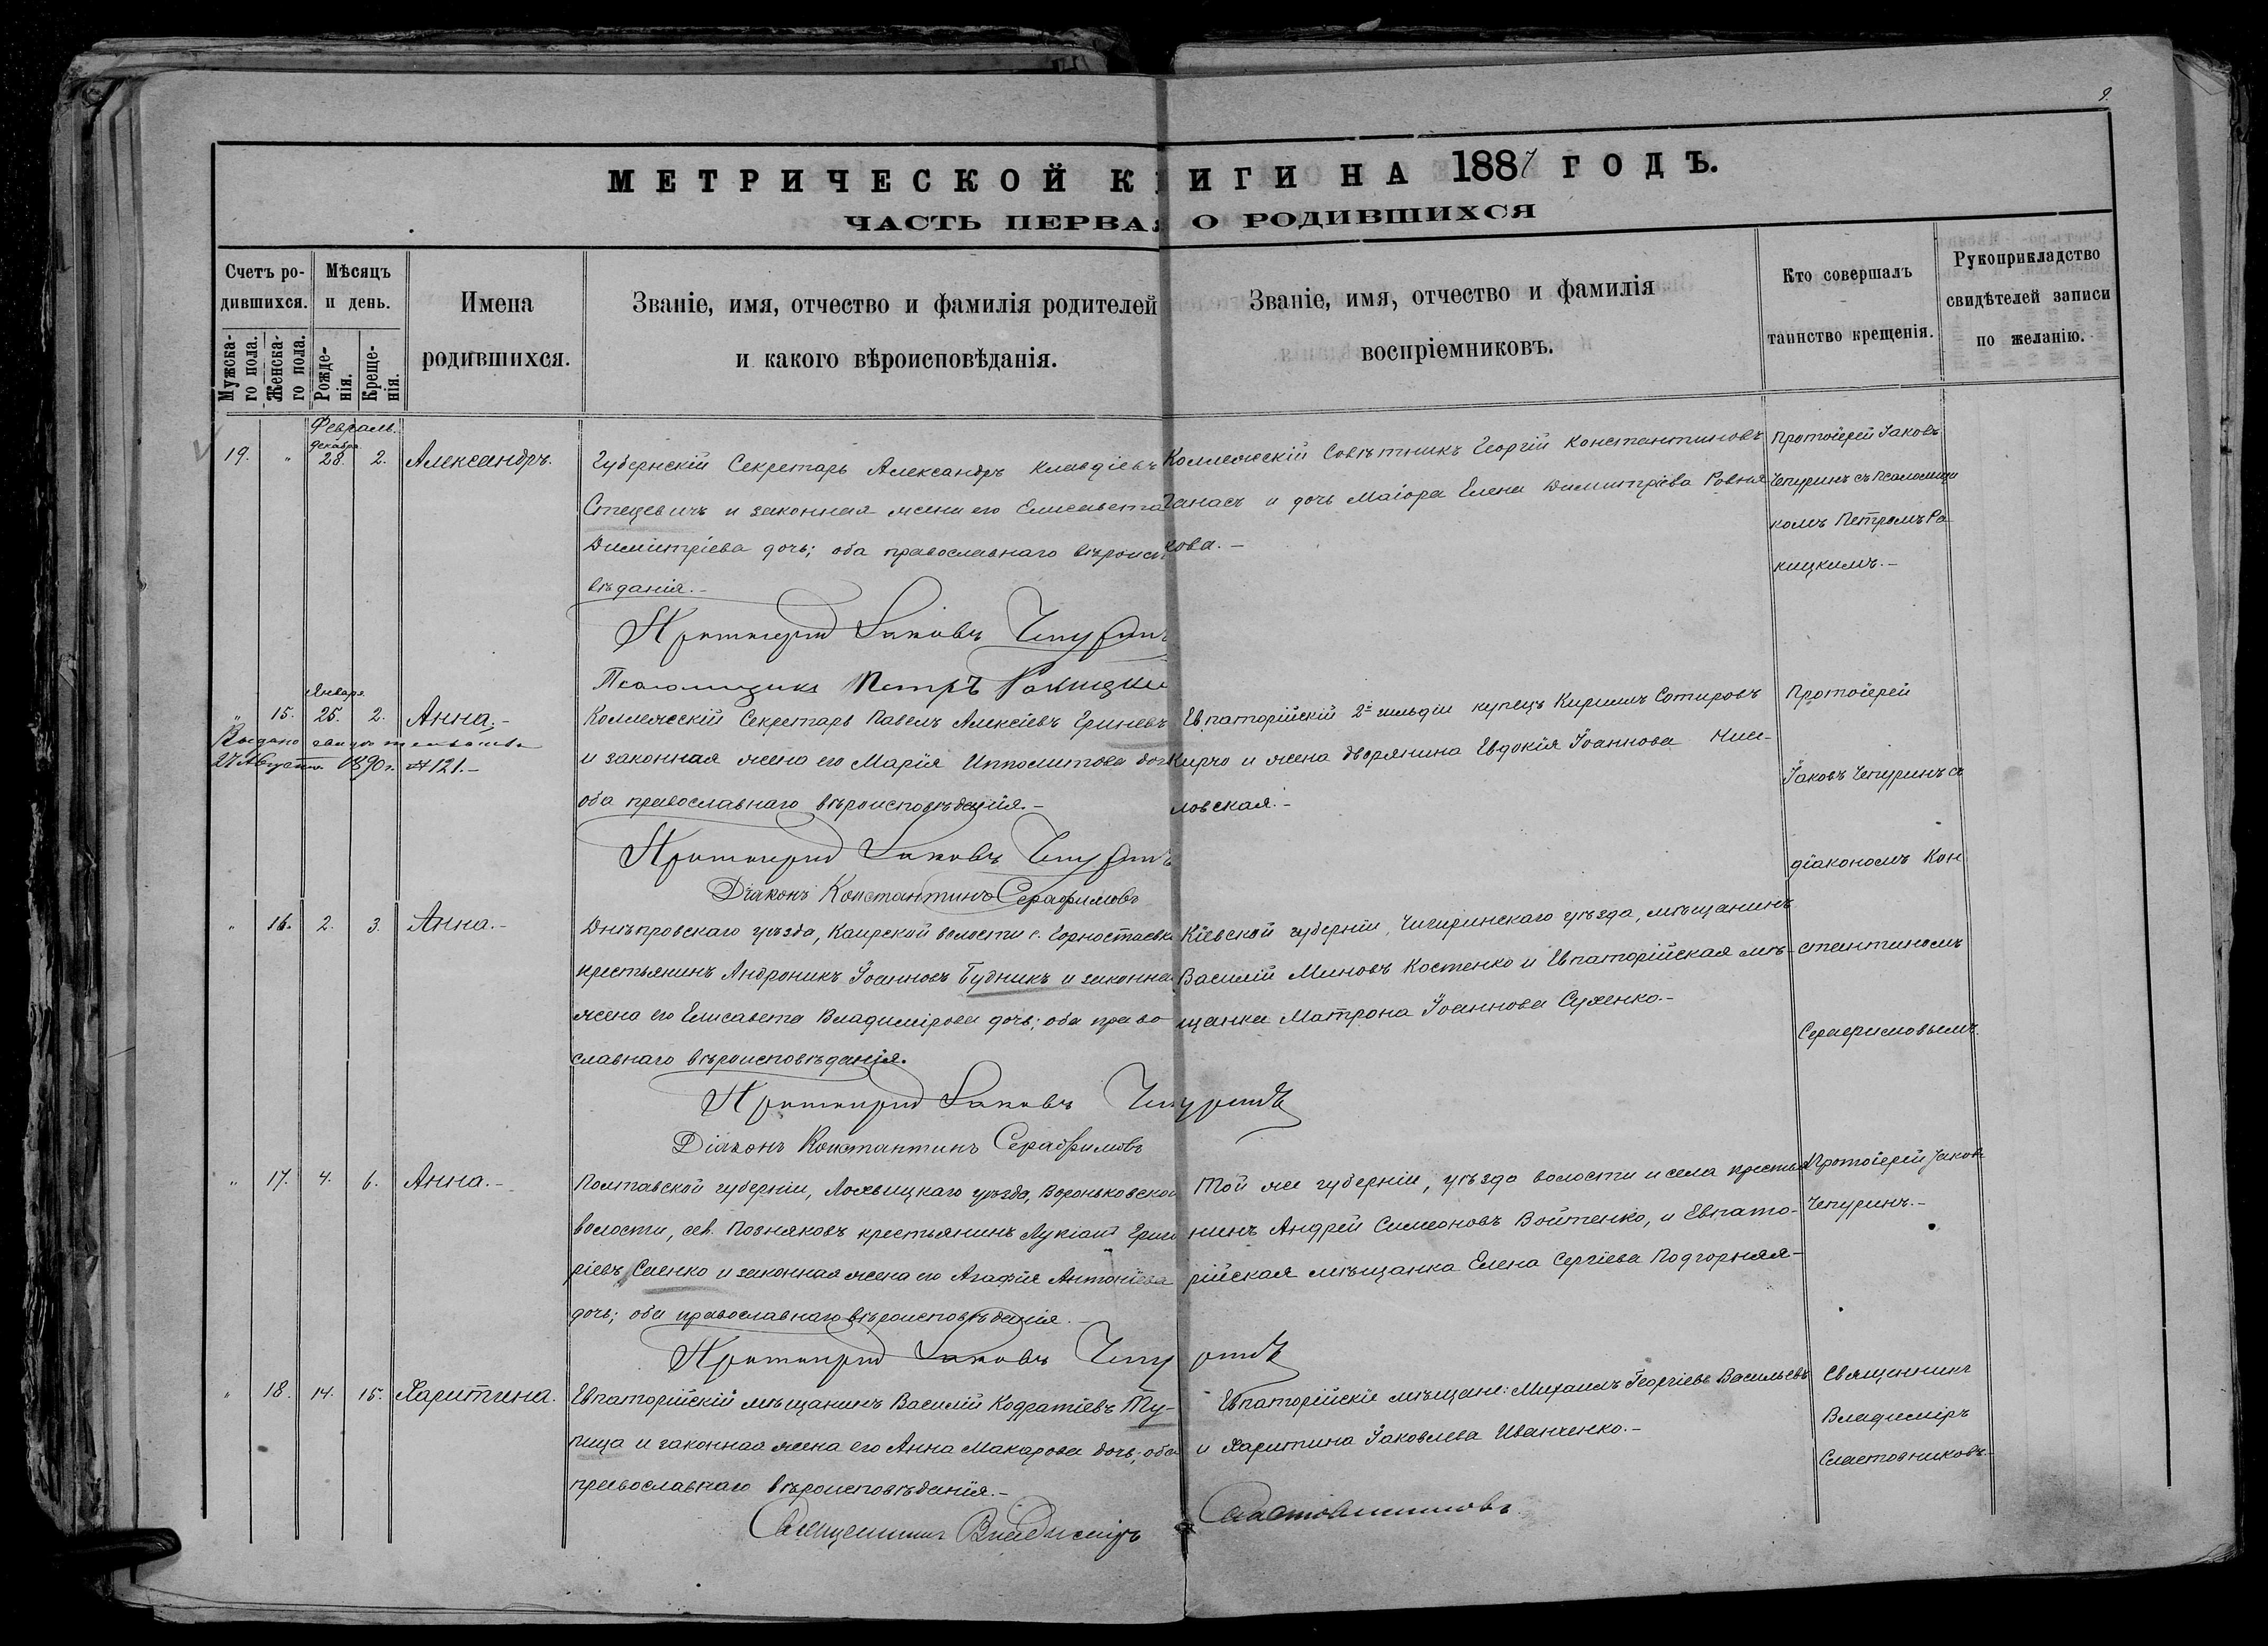 9.
МЕТРИЧЕСКОЙ КНИГИ НА 1887 ГОДЪ.
ЧАСТЬ ПЕРВАЯ О РОДИВШИХСЯ
Счетъ ро-
дившихся.
Мужска-
го пола.
Женска-
го пола.
Мѣсяцъ
и день.
Рожде-
нія.
Креще-
нія.
Имена
родившихся.
Званіе, имя, отчество и фамилія родителей
и какого вѣроисповѣданія.
Званіе, имя, отчество и фамилія
воспріемниковъ.
Кто совершалъ
таинство крещенія.
Рукоприкладство
свидѣтелей записи
по желанію.
Февраль.
декабря
19. " 28. 2. Александръ.
Губернскій Секретарь Александръ Клавдіевъ
Стецевичъ и законная жена его Елисавета
Димитріева дочь; оба православнаго вѣроиспо
вѣданія.-
Коллежскій Совѣтникъ Георгій Константиновъ
Ганасъ и дочь Маіора Елена Димитріева Ровня
кова.-
Протоіерей Іаковъ
Чепуринъ съ Псаломщи
комъ Петромъ Ра
кицкимъ.-
Протоіерей Іаковъ Чепуринъ
Псаломщикъ Петръ Ракицкій
Января
" 15. 25. 2. Анна.-
Выдано свидѣтельство
27 Августа 1890 г. № 121.-
Коллежскій Секретарь Павелъ Алексіевъ Гриневъ
и законная жена его Марія Ипполитова доч
оба православнаго вѣроисповѣданія.-
Евпаторійскій 2й гильдіи купецъ Кириллъ Сотировъ
Кирчо и жена дворянина Евдокія Іоаннова
ловская.-
Протоіерей
Іаковъ Чепуринъ съ
діакономъ Кон
стантиномъ
Серафимовымъ.
Протоіерей Іаковъ Чепуринъ
Діаконъ Константинъ Серафимовъ
" 16. 2. 3. Анна.-
Днѣпровскаго уѣзда, Каирской волости с. Горностаевки
крестьянинъ Андроникъ Іоанновъ Будникъ и законна
жена его Елисавета Владимірова дочь; оба право
славнаго вѣроисповѣданія.
Кіевской губерніи, Чигиринскаго уѣзда, мѣщанинъ
Василій Миновъ Костенко и Евпаторійская мѣ-
щанка Матрона Іоаннова Сухенко.-
Протоіерей Іаковъ Чепуринъ
Діаконъ Константинъ Серафимовъ
" 17. 4. 6. Анна.-
Полтавской губерніи, Лохвицкаго уѣзда, Вороньковской
волости, сел. Позняковъ крестьянинъ Лукіанъ Григо
ріевъ Саенко и законная жена его Агафія Антоніева
дочь; оба православнаго вѣроисповѣданія.-
Той же губерніи, уѣзда волости и села крестья
нинъ Андрей Симеоновъ Войтенко, и Евпато-
рійская мѣщанка Елена Сергіева Подгорняя-
Протоіерей Іаковъ
Чепуринъ.-
Протоіерей Іаковъ Чепуринъ
" 18. 14. 15. Харитина.
Евпаторійскій мѣщанинъ Василій Кодратіевъ Ту-
пица и законная жена его Анна Макарова дочь; оба
православнаго вѣроисповѣданія.-
Евпаторійскіе мѣщане: Михаилъ Георгіевъ Васильевъ
и Харитина Іаковлева Иванченко.-
Священникъ
Владиміръ
Сластовниковъ.
Священникъ Владиміръ Сластовниковъ